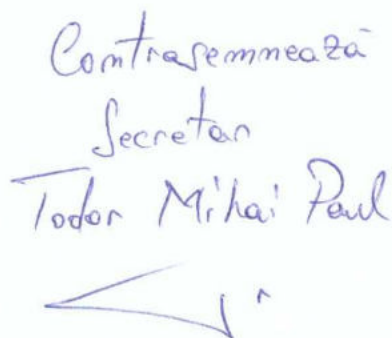 Contrasemnează
Secretar
Todor Mihai Paul